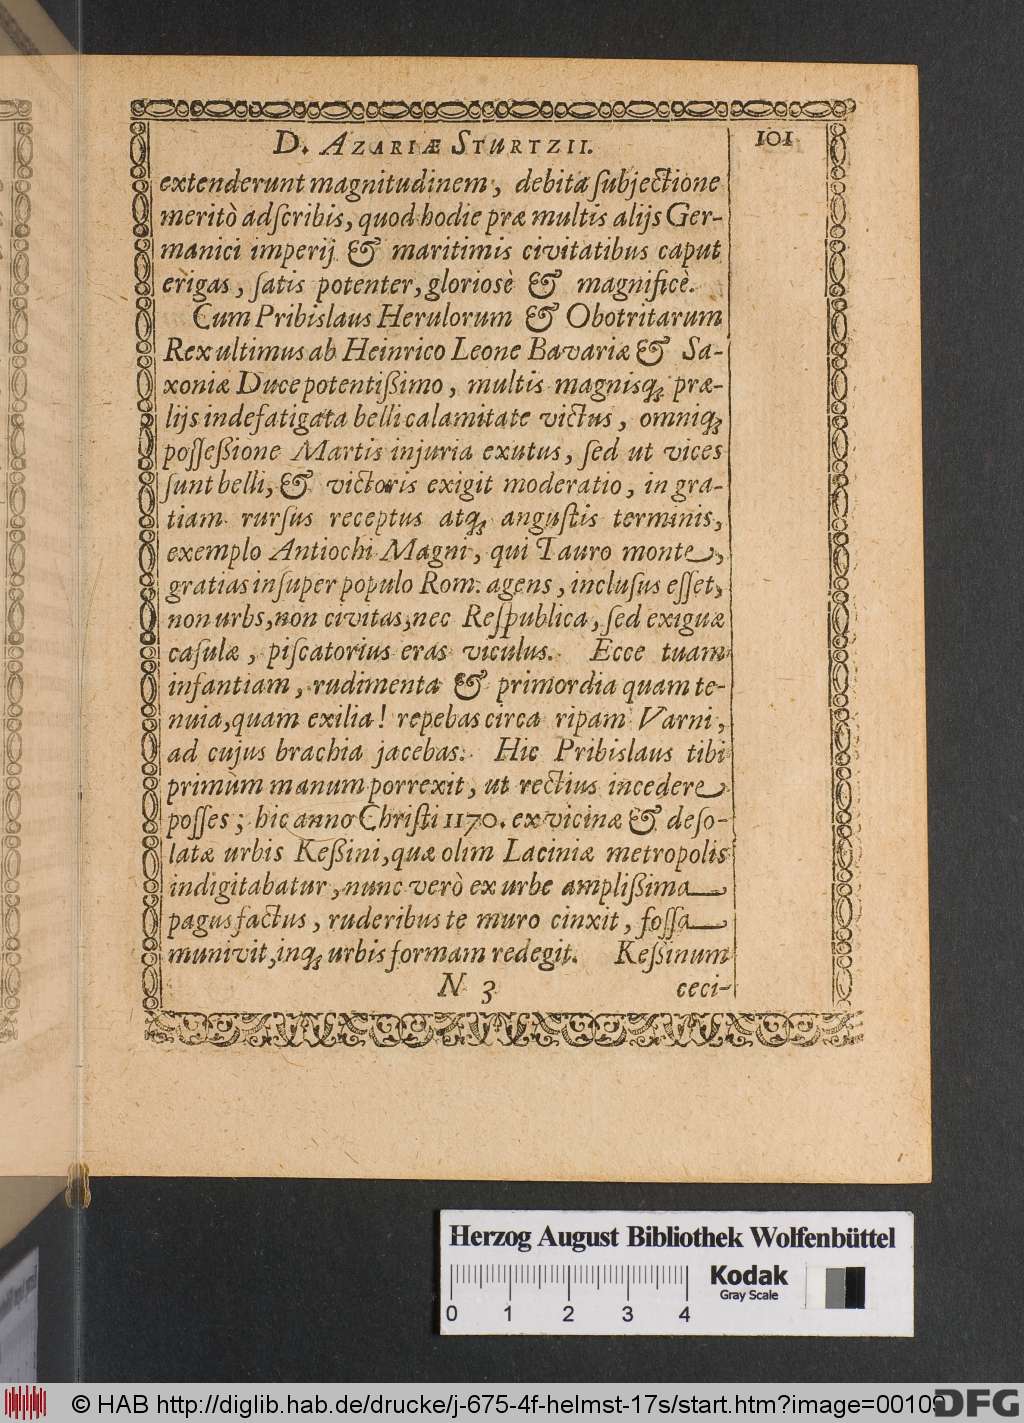 D. AZARIÆ STURTZII. 101
extenderunt magnitudinem, debita ſubjectione
meritò adſcribis, quod hodie præ multis alijs Ger-
manici imperij & maritimis civitatibus caput
erigas, ſatis potenter, glorioſè & magnificè.
Cum Pribislaus Herulorum & Obotritarum
Rex ultimus ab Heinrico Leone Bavariæ & Sa-
xoniæ Duce potentißimo, multis magnisq; præ-
lijs indefatigata belli calamitate victus, omniq;
poſſeßione Martis injuria exutus, ſed ut vices
ſunt belli, & victoris exigit moderatio, in gra-
tiam rurſus receptus atq; anguſtis terminis,
exemplo Antiochi Magni, qui Tauro monte,
gratias inſuper populo Rom: agens, incluſus eſſet,
non urbs, non civitas, nec Reſpublica, ſed exiguæ
caſulæ, piſcatorius eras viculus. Ecce tuam
infantiam, rudimenta & primordia quam te-
nuia, quam exilia! repebas circa ripam Varni,
ad cujus brachia jacebas. Hic Pribislaus tibi
primùm manum porrexit, ut rectius incedere
poſſes; hic anno Chriſti 1170. ex vicinæ & deſo-
latæ urbis Keßini, quæ olim Laciniæ metropolis
indigitabatur, nunc verò ex urbe amplißima
pagus factus, ruderibus te muro cinxit, foſſa
munivit, inq; urbis formam redegit. Keßinum
N 3 ceci-
Herzog August Bibliothek Wolfenbüttel
Kodak
Gray Scale
0 1 2 3 4
© HAB http://diglib.hab.de/drucke/j-675-4f-helmst-17s/start.htm?image=00109
DFG